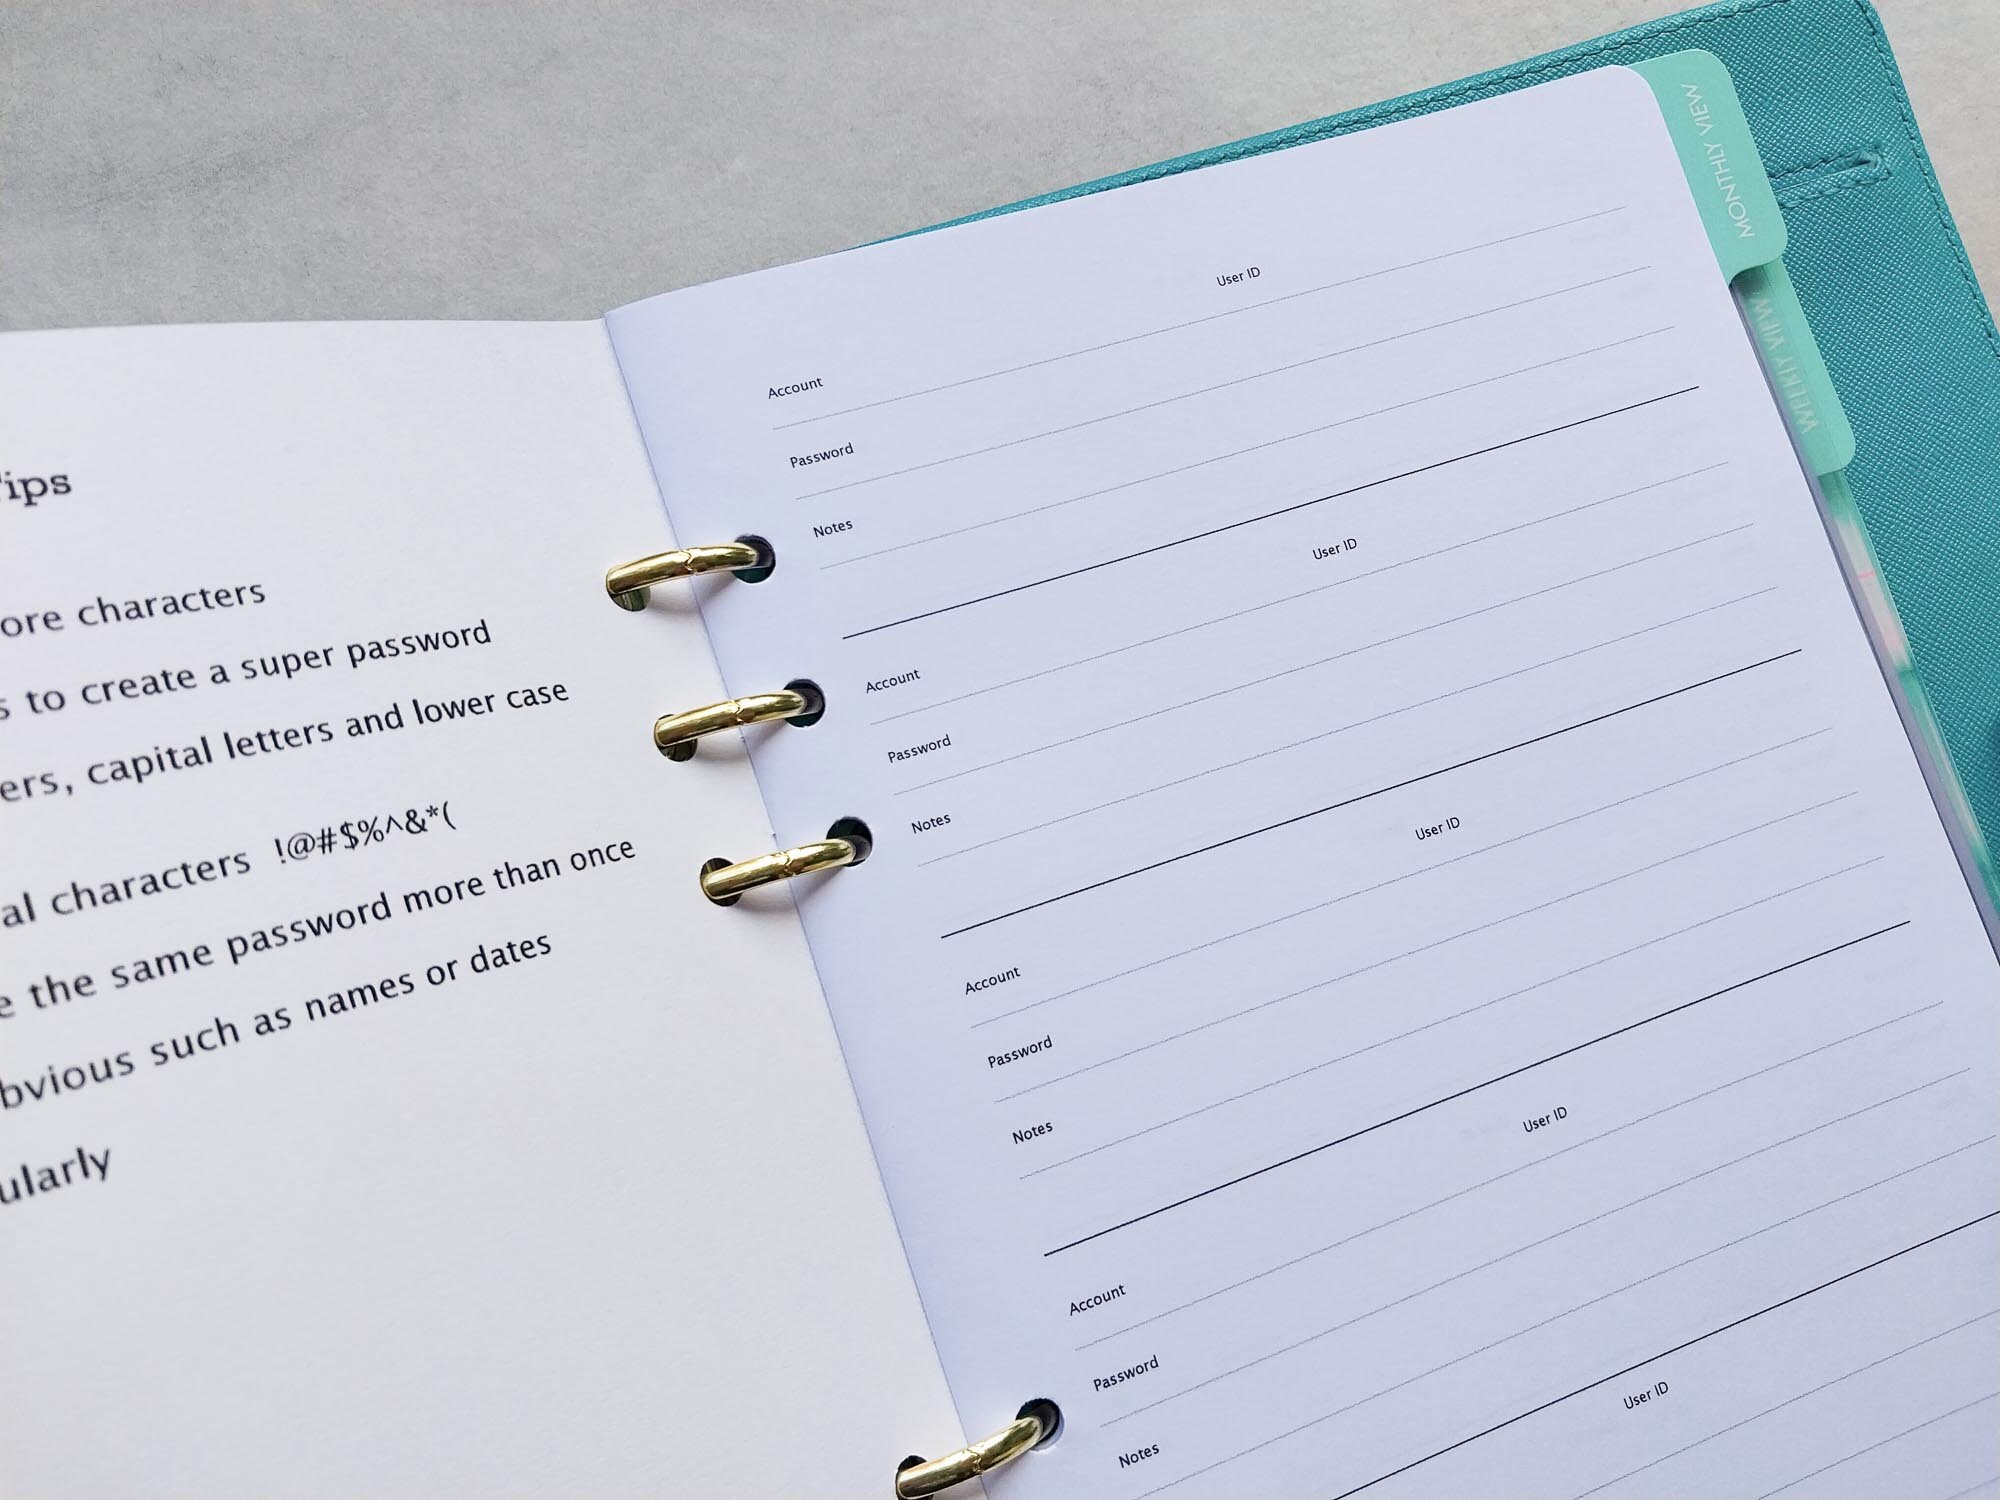 Tips
ore characters
s to create a super password
ers, capital letters and lower case
al characters !@#$%^&*(
e the same password more than once
bvious such as names or dates
ularly
User ID
Account
Password
Notes
User ID
Account
Password
Notes
User ID
Account
Password
Notes
User ID
Account
Password
Notes
User ID
MONTHLY VIEW
WEEKLY VIEW